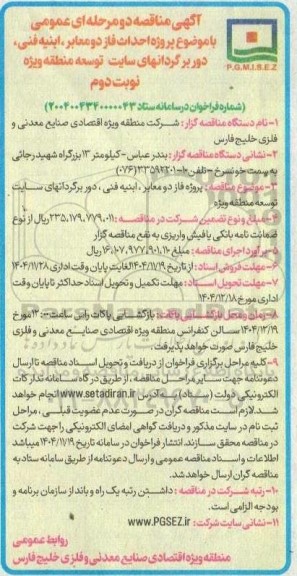 آگهی مناقصه دو مرحله ای عمومی
با موضوع پروژه احداث فاز دو معابر، ابنیه فنی،
دور برگردانهای سایت توسعه منطقه ویژه
نوبت دوم
P.G.M.I.S.E.Z
(شماره فراخوان در سامانه ستاد 2004004340000043)
1-نام دستگاه مناقصه گزار: شرکت منطقه ویژه اقتصادی صنایع معدنی و
فلزی خلیج فارس
2-نشانی دستگاه مناقصه گزار: بندرعباس-کیلومتر 13 بزرگراه شهید رجائی
به سمت خونسرخ -تلفن 10-33592201 (076)
3-موضوع مناقصه: پروژه فاز دو معابر، ابنیه فنی، دور برگردانهای سایت
توسعه منطقه ویژه
4-مبلغ و نوع تضمین شرکت در مناقصه: 235,179,779,011 ریال از نوع
ضمانت نامه بانکی یا فیش واریزی به نفع مناقصه گزار
5-برآورد اجرای مناقصه: مبلغ 16,107,977,901,110 ریال
6-مهلت فروش اسناد: از تاریخ 1404/11/19 لغایت پایان وقت اداری 1404/11/28
7-مهلت تحویل اسناد: مهلت تکمیل و تحویل اسناد حداکثر تا پایان وقت
اداری مورخ 1404/12/18
8-زمان و محل بازگشائی پاکات: بازگشائی پاکات راس ساعت 13:00 مورخ
1404/12/19 سالن کنفرانس منطقه ویژه اقتصادی صنایع معدنی و فلزی
خلیج فارس صورت خواهد پذیرفت.
9-کلیه مراحل برگزاری فراخوان از دریافت و تحویل اسناد مناقصه تا ارسال
دعوتنامه جهت سایر مراحل مناقصه، از طریق درگاه سامانه تدارکات
الکترونیکی دولت (ستاد) به آدرس www.setadiran.ir انجام خواهد
شد. لازم است مناقصه گران در صورت عدم عضویت قبلی، مراحل
ثبت نام در سایت مذکور و دریافت گواهی امضای الکترونیکی را جهت شرکت
در مناقصه محقق سازند. انتشار فراخوان در سامانه تاریخ 1404/11/19 میباشد
اطلاعات و اسناد مناقصه عمومی و ارسال دعوتنامه از طریق سامانه ستاد به
مناقصه گران ارسال خواهد شد.
10-رتبه شرکت در مناقصه: داشتن رتبه یک راه و باند از سازمان برنامه و
بودجه الزامی است.
11-نشانی سایت شرکت: www.PGSEZ.ir
روابط عمومی
منطقه ویژه اقتصادی صنایع معدنی و فلزی خلیج فارس